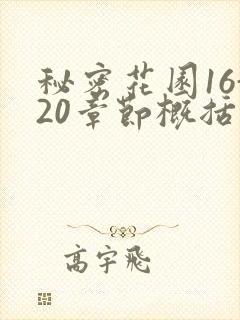 秘密花园16-
20章节概括
高宇飞